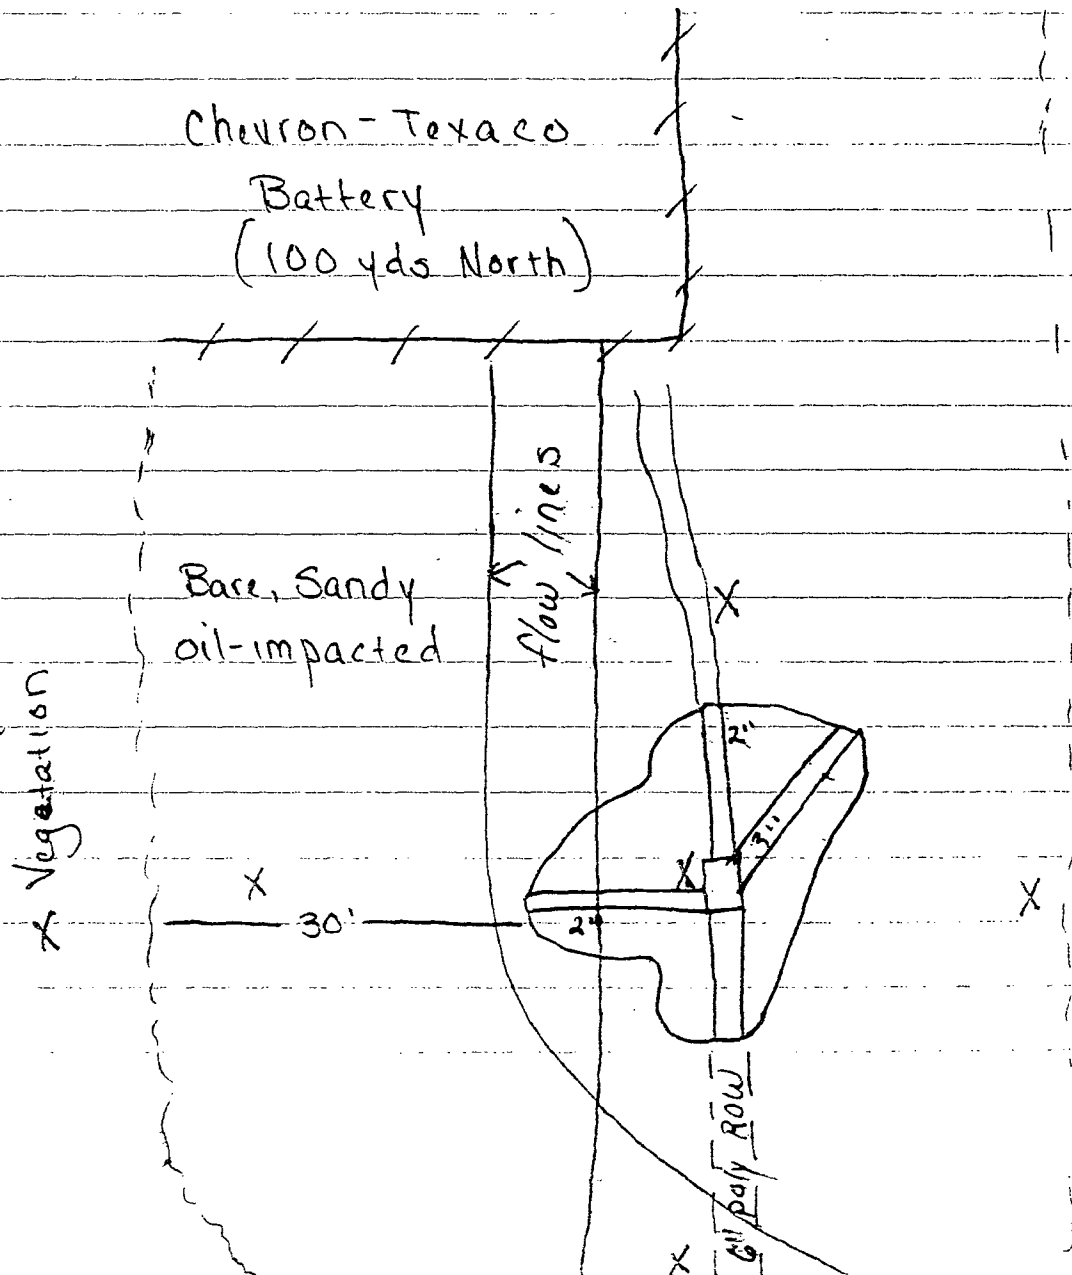 Chevron-Texaco
Battery
(100 yds North)
flow lines
Bare, Sandy
oil-impacted
X
Vegetation
X
2"
3"
X
X
X
30'
2"
6" poly ROW
X